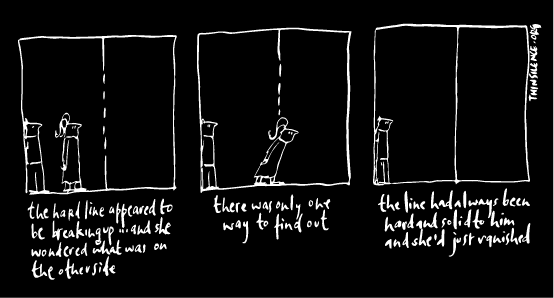 the hard line appeared to
be breaking up... and she
wondered what was on
the otherside
there was only one
way to find out
the line had always been
hard and solid to him
and she'd just vanished
THINSILENCE.ORG